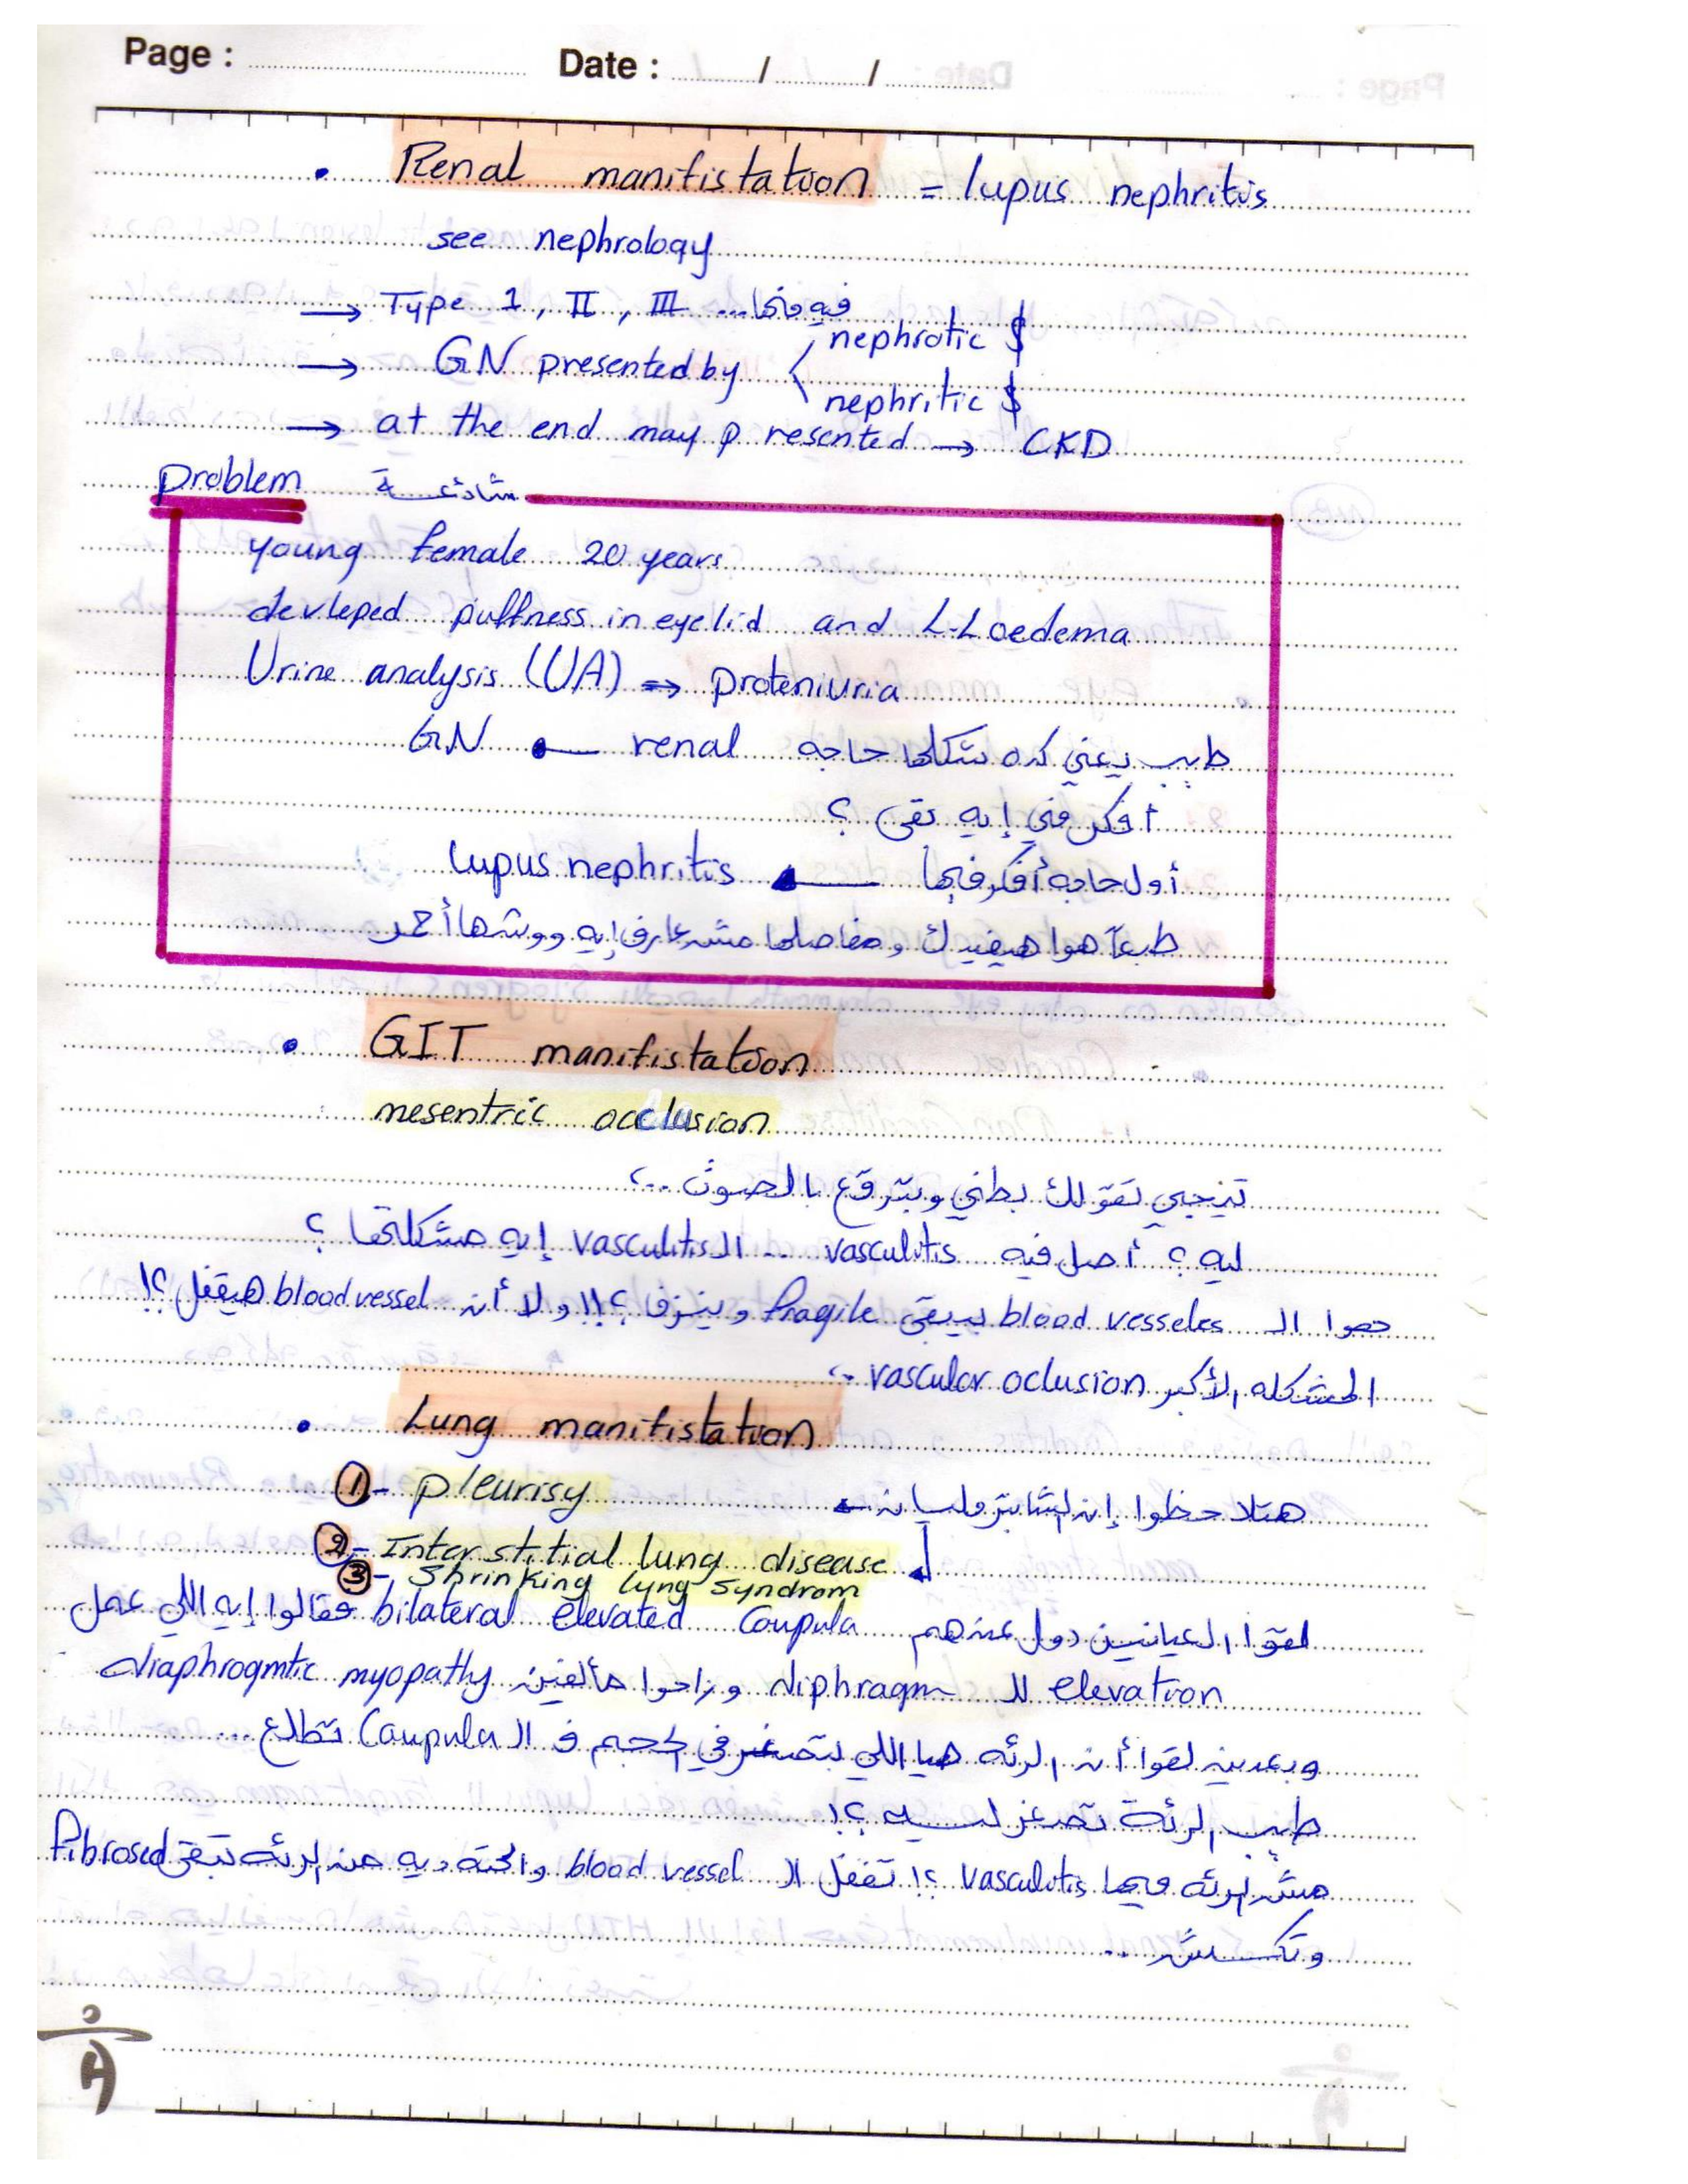 Page : Date : / /
• Renal manifistation = lupus nephritis
see nephrology
→ Type 1, II, III ... فيه
→ GN presented by nephrotic $
nephritic $
→ at the end may presented → CKD
problem شائعة
young female 20 years
devleped puffness in eyelid and L-L oedema
Urine analysis (UA) ⇒ proteniuria
طيب يعني كده شكلها حاجه renal ← GN
أفكر في إيه بقى ؟
أول حاجه أفكر فيها ← lupus nephritis
طبعاً هوا هيفيدك ومفاصلها مش عارف إيه ووشها أحمر
• GIT manifistation
mesentric occlusion
تيجي تقولك بطني وبترقع بالصوت ..،
ليه ؟ أصل فيه vasculitis .. الـ vasculitis إيه مشكلتها ؟
هوا الـ blood vesseles بيبقى fragile وينزف ؟!! ولا أن blood vessel هيقفل ؟!
المشكله الأكبر vascular oclusion ..،
• Lung manifistation
1- pleurisy هتلاحظوا إن الشابتر مليان ←
2- Interstitial lung disease
3- Shrinking lung syndrom
لقوا العيانين دول عندهم bilateral elevated Coupula فقالوا إيه اللي عمل
elevation للـ diphragm وراحوا مألفين diaphrogmtic myopathy
وبعدين لقوا أن الرئه هيا اللي بتصغر في الحجم ف الـ Caupula تطلع ...
طيب الرئة تصغر ليه ؟!
مش الرئه فيها vasculitis ؟! تقفل الـ blood vessel والحته ديه من الرئه تبقى fibrosed
وتكش ..